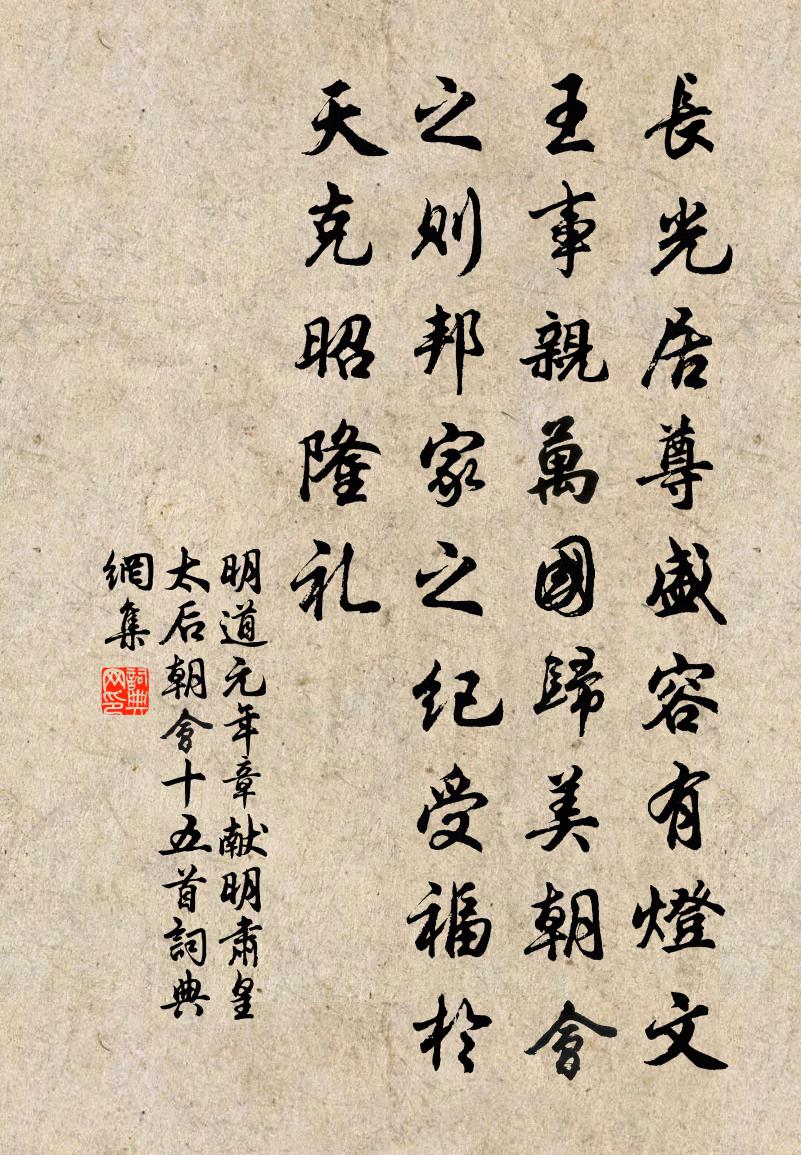 長光居尊盛容有燈文
王事親萬國歸美朝會
之則邦家之紀受福於
天克昭隆礼
明道元年章献明肅皇
太后朝會十五首詞典
網集
詞典
网印